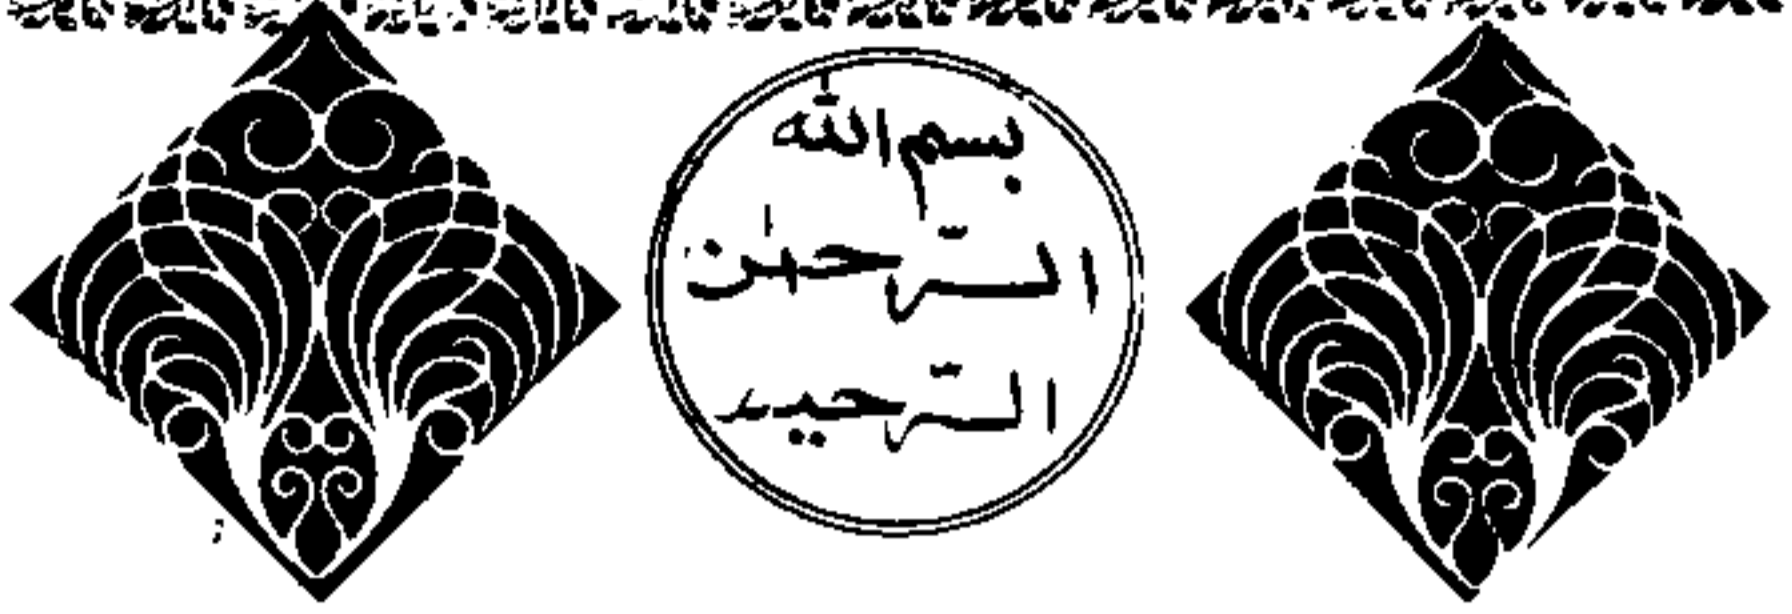 بسم الله
الرّحمٰن
الرّحيم